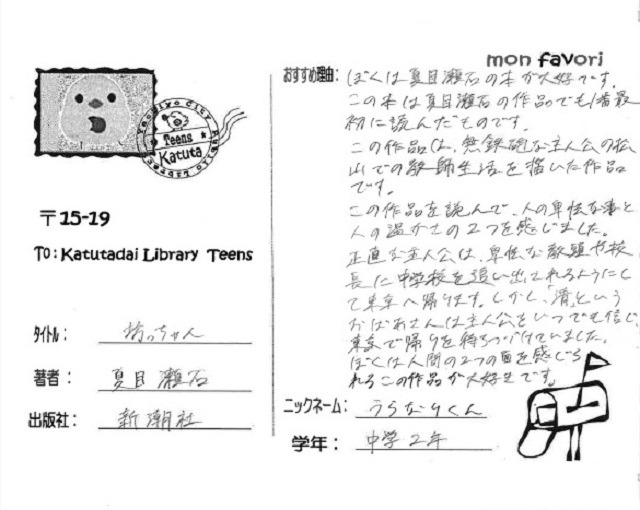 mon favori
Yachiyo City Public Library
Teens
Katuta
〒15-19
To: Katutadai Library Teens
タイトル: 坊っちゃん
著者: 夏目瀬石
出版社: 新潮社
おすすめ理由: ぼくは夏目瀬石の本が大好です。
この本は夏目瀬石の作品でも1番最
初に読んだものです。
この作品は、無鉄砲な主人公の松
山での教師生活を描いた作品
です。
この作品を読んで、人の卑怯な事と
人の温かさの2つを感じました。
正直な主人公は、卑怯な教頭や校
長に中学校を追い出されるようにし
て東京へ帰ります。しかし、「清」という
おばあさんは主人公をいつでも信じ、
東京で帰りを待ちつづけていました。
ぼくは人間の2つの面を感じら
れるこの作品が大好きです。
ニックネーム: うらなりくん
学年: 中学2年